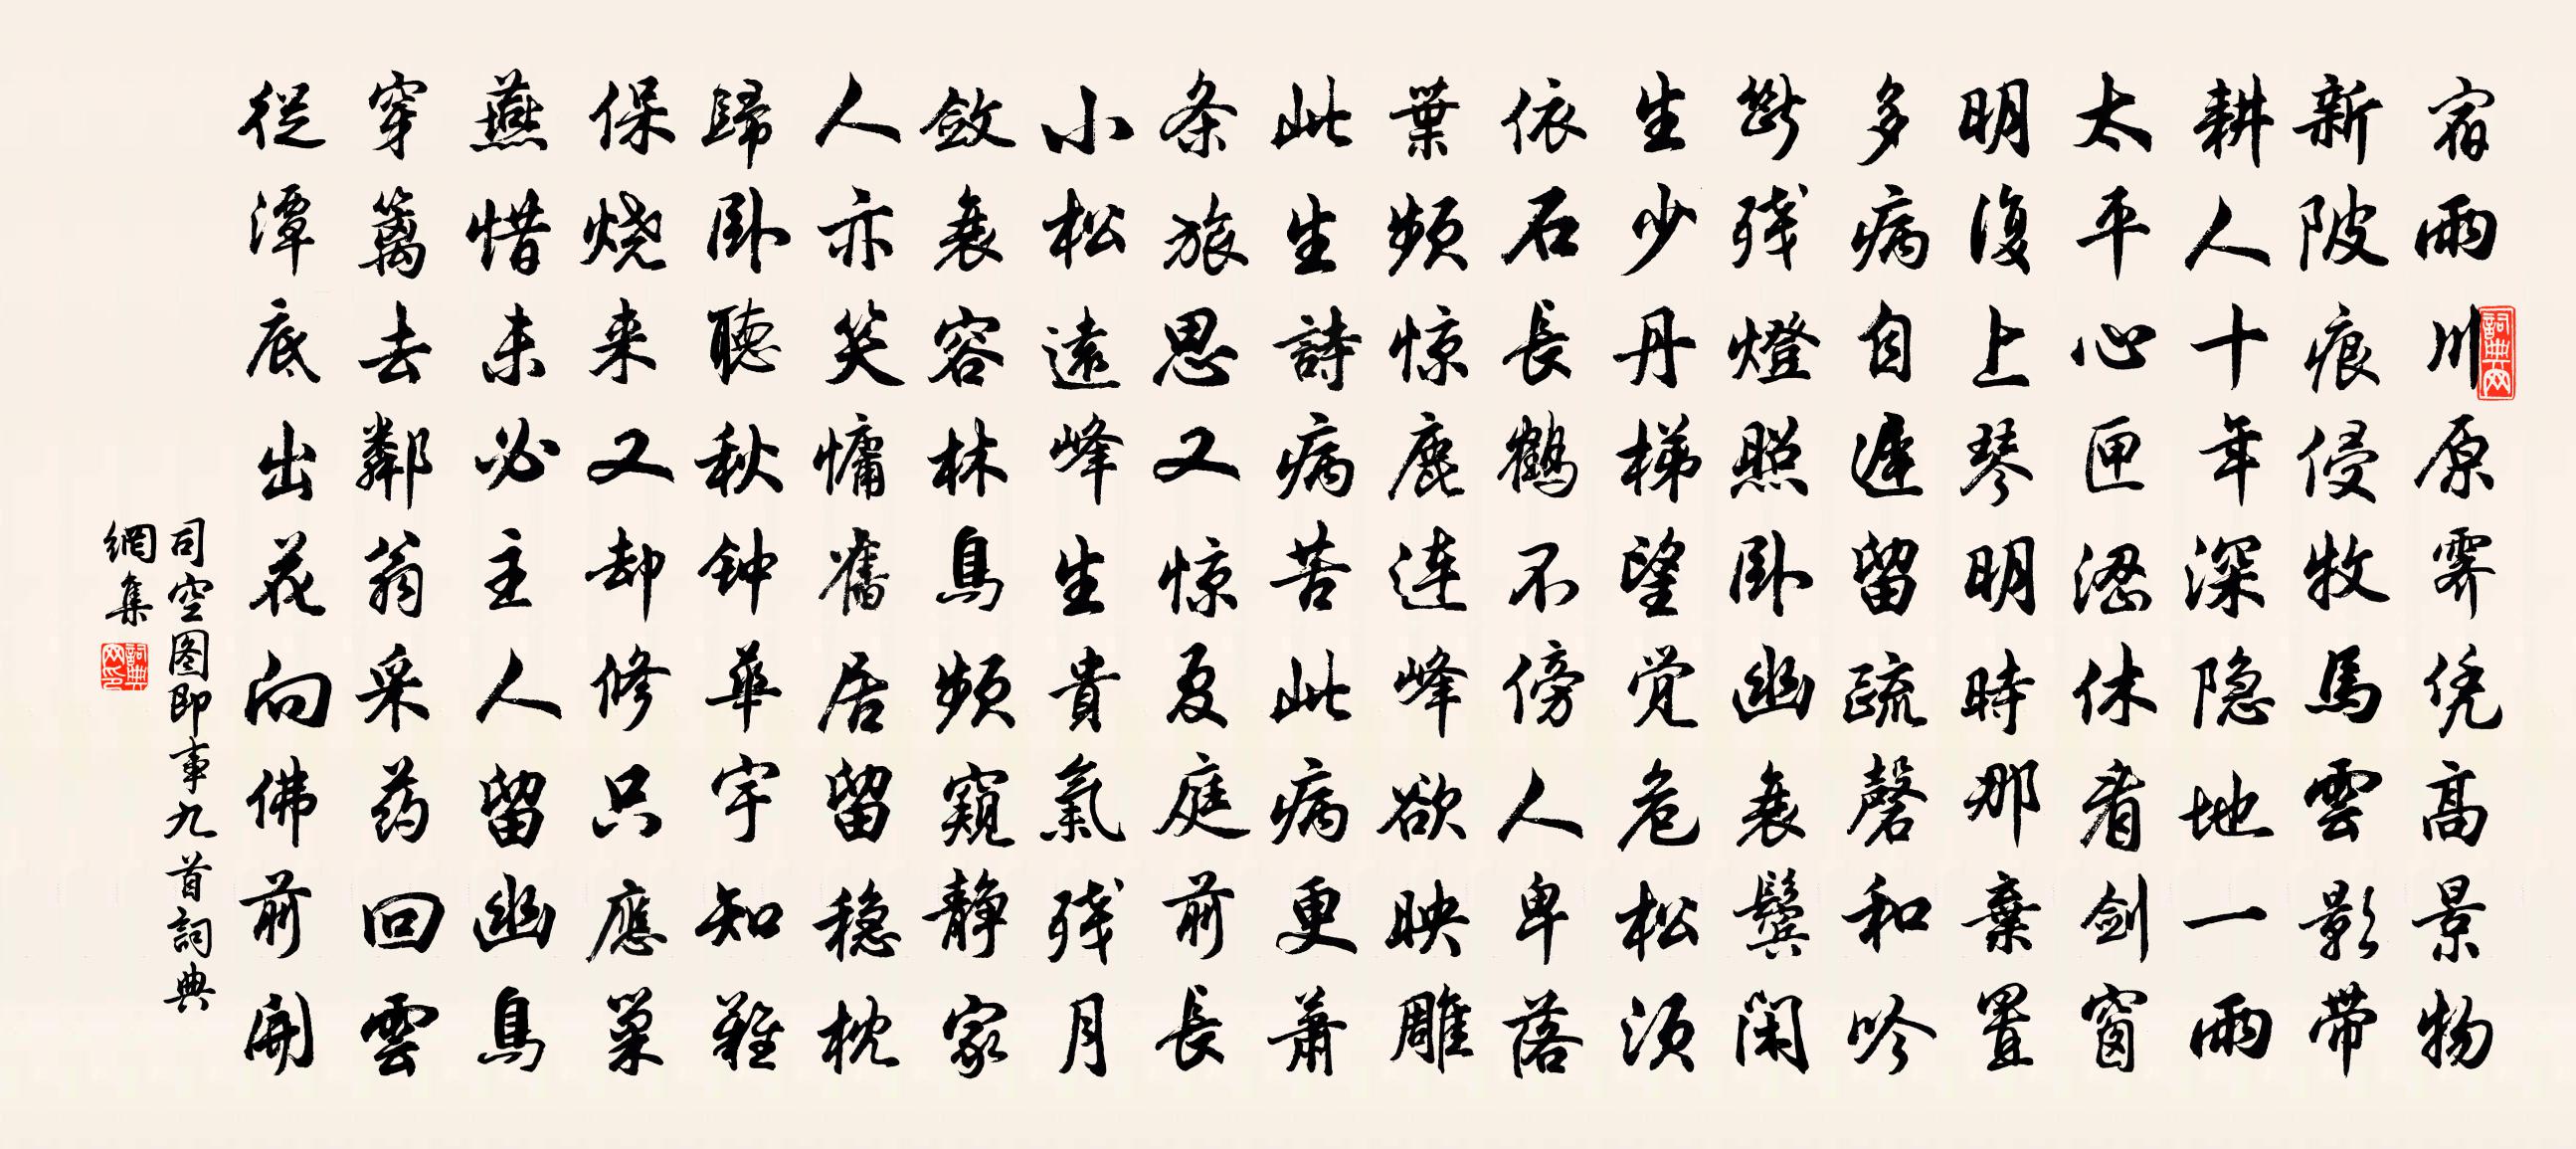 宿雨川原霽凭高景物
新陂痕侵牧馬雲影帶
耕人十年深隐地一雨
太平心匣澀休看剑窗
明復上琴明時那棄置
多病自遲留疏磬和吟
斷残燈照卧幽衰鬢閑
生少丹梯望觉危松須
依石長鶴不傍人卑落
葉頻惊鹿連峰欲映雕
此生詩病苦此病更萧
条旅思又惊夏庭前長
小松遠峰生貴氣残月
斂衰容林鳥頻窺静家
人亦笑慵舊居留穏枕
歸卧聽秋钟華宇知難
保烧来又却修只應巢
燕惜未必主人留幽鳥
穿籬去鄰翁采药回雲
従潭底出花向佛前開
司空图即事九首詞典
網集
詞典网
詞典网印